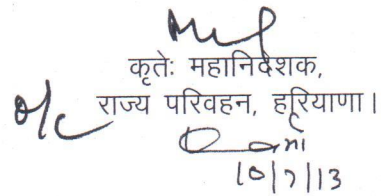 कृतेः महानिदेशक,
o/c राज्य परिवहन, हरियाणा।
10/7/13